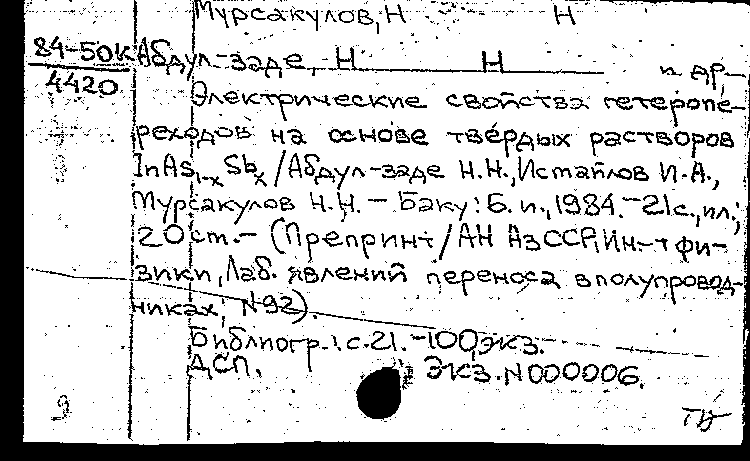 Мурсакулов, Н Н
84-50К Абдул-заде, Н Н и др,
4420
Электрические свойства гетеропе-
реходов на основе твёрдых растворов
InAs1-x Sbx /Абдул-заде Н.Н., Исмайлов И.А.,
Мурсакулов Н.Н. — Баку: Б. и., 1984. -21с., ил.;
20 см. - (Препринт / АН АзССР, Ин-т фи-
зики, Лаб. явлений переноса в полупровод-
никах; N92).
Библиогр.: с.21. -100 экз.
ДСП. Экз. N000006.
9